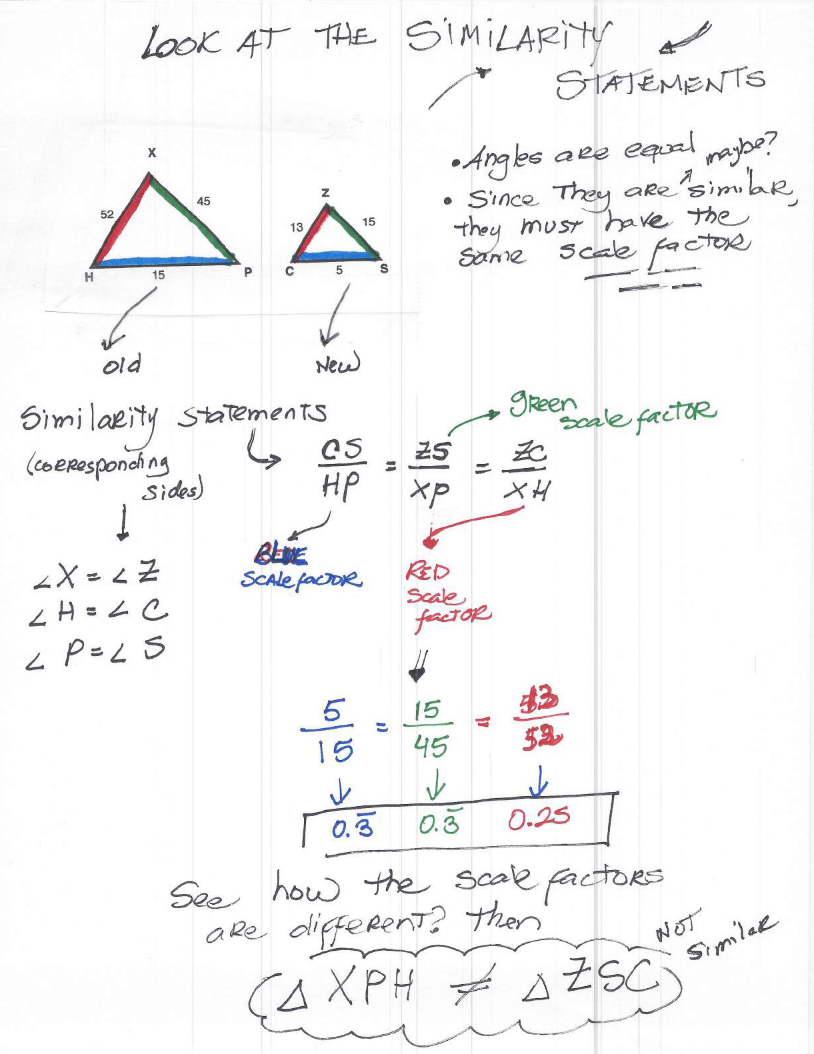 LOOK AT THE SIMILARITY
STATEMENTS
X
52
45
H
15
P
Z
13
15
C
5
S
• Angles are equal maybe?
• Since They are similar,
they must have the
same scale factor
Old
New
Similarity statements
(corresponding
sides)
CS/HP = ZS/XP = ZC/XH
green
scale factor
BLUE
Scale factor
RED
Scale
factor
∠X = ∠Z
∠H = ∠C
∠P = ∠S
5/15 = 15/45 = 13/52
0.3̅ 0.3̅ 0.25
See how the scale factors
are different? then
NOT
similar
△XPH ≠ △ZSC